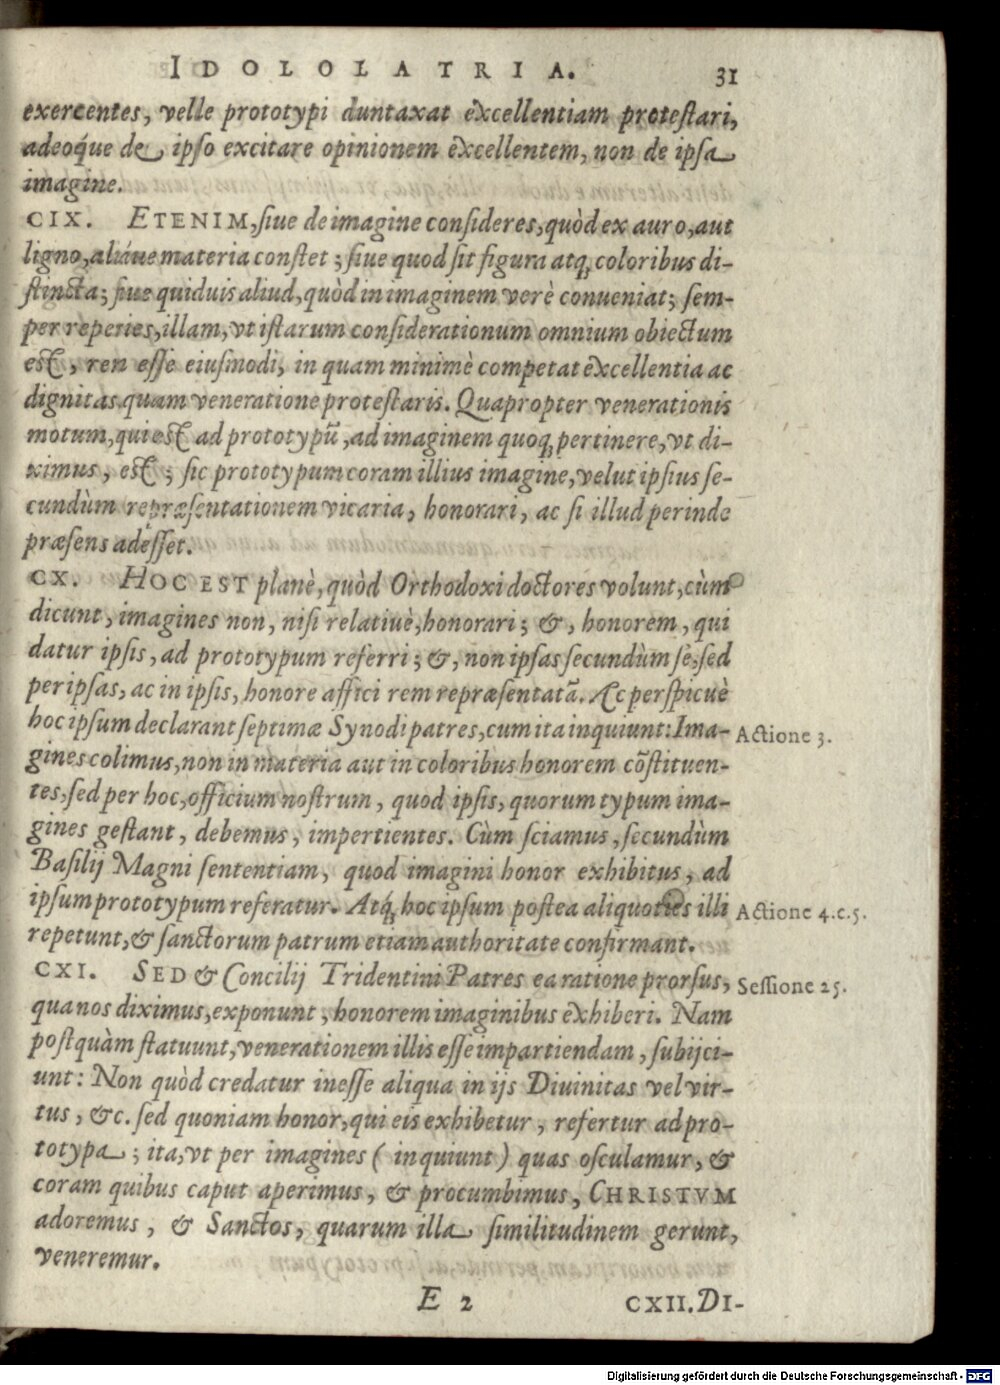 IDOLOLATRIA. 31
exercentes, velle prototypi duntaxat excellentiam protestari,
adeoq́ue de ipso excitare opinionem excellentem, non de ipsa
imagine.
CIX. ETENIM, siue de imagine consideres, quòd ex auro, aut
ligno, aliáue materia constet; siue quod sit figura atq́; coloribus di-
stincta; siue quiduis aliud, quòd in imaginem verè conueniat; sem-
per reperies, illam, vt istarum considerationum omnium obiectum
est, rem esse eiusmodi, in quam minimè competat excellentia ac
dignitas quam veneratione protestaris. Quapropter venerationis
motum, qui est ad prototypũ, ad imaginem quoq; pertinere, vt di-
ximus, est; sic prototypum coram illius imagine, velut ipsius se-
cundùm repræsentationem vicaria, honorari, ac si illud perinde
præsens adesset.
CX. HOC EST planè, quòd Orthodoxi doctores volunt, cùm
dicunt, imagines non, nisi relatiuè, honorari; &, honorem, qui
datur ipsis, ad prototypum referri; &, non ipsas secundùm se, sed
per ipsas, ac in ipsis, honore affici rem repræsentatã. Ac perspicuè
hoc ipsum declarant septimæ Synodi patres, cum ita inquiunt: Ima-
gines colimus, non in materia aut in coloribus honorem cõstituen-
tes, sed per hoc, officium nostrum, quod ipsis, quorum typum ima-
gines gestant, debemus, impertientes. Cùm sciamus, secundùm
Basilij Magni sententiam, quod imagini honor exhibitus, ad
ipsum prototypum referatur. Atq́; hoc ipsum postea aliquoties illi
repetunt, & sanctorum patrum etiam authoritate confirmant.
CXI. SED & Concilij Tridentini Patres ea ratione prorsus,
qua nos diximus, exponunt, honorem imaginibus exhiberi. Nam
postquàm statuunt, venerationem illis esse impartiendam, subijci-
unt: Non quòd credatur inesse aliqua in ijs Diuinitas vel vir-
tus, &c. sed quoniam honor, qui eis exhibetur, refertur ad pro-
totypa; ita, vt per imagines (inquiunt) quas osculamur, &
coram quibus caput aperimus, & procumbimus, CHRISTVM
adoremus, & Sanctos, quarum illa similitudinem gerunt,
veneremur.
Actione 3.
Actione 4.e.5.
Sessione 25.
E 2 CXII. DI-
Digitalisierung gefördert durch die Deutsche Forschungsgemeinschaft - DFG